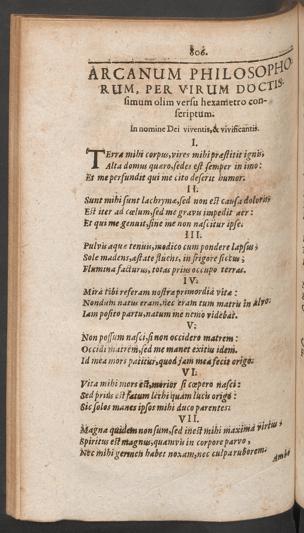 806.
ARCANUM PHILOSOPHO-
RUM, PER VIRUM DOCTIS-
simum olim versu hexametro con-
scriptum.
In nomine Dei viventis, & vivificantis.
I.
Terra mihi corpus, vires mihi præstitit ignis,
Alta domus quæro, sedes est semper in imo:
Et me perfundit qui me cito deserit humor.
II.
Sunt mihi sunt lachrymæ, sed non est causa doloris,
Est iter ad cœlum, sed me gravis impedit aer:
Et qui me genuit, sine me non nascitur ipse.
III.
Pulvis aquæ tenuis, modico cum pondere lapsus,
Sole madens, æstate fluens, in frigore siccus,
Flumina facturus, totas prius occupo terras.
IV.
Mira tibi referam nostra primordia vitæ:
Nondum natus eram, nec eram tum matris in alvo:
Iam posito partu, natum me nemo videbat.
V.
Non possum nasci, si non occidero matrem:
Occidi matrem, sed me manet exitus idem.
Id mea mors patitur, quod jam mea fecit origo.
VI.
Vita mihi mors est, morior si cœpero nasci:
Sed prius est fatum lethi quàm lucis origo:
Sic solos manes ipsos mihi duco parentes.
VII.
Magna quidem non sum, sed inest mihi maxima virtus;
Spiritus est magnus, quamvis in corpore parvo,
Nec mihi germen habet noxam, nec culpa ruborem.
Ambo